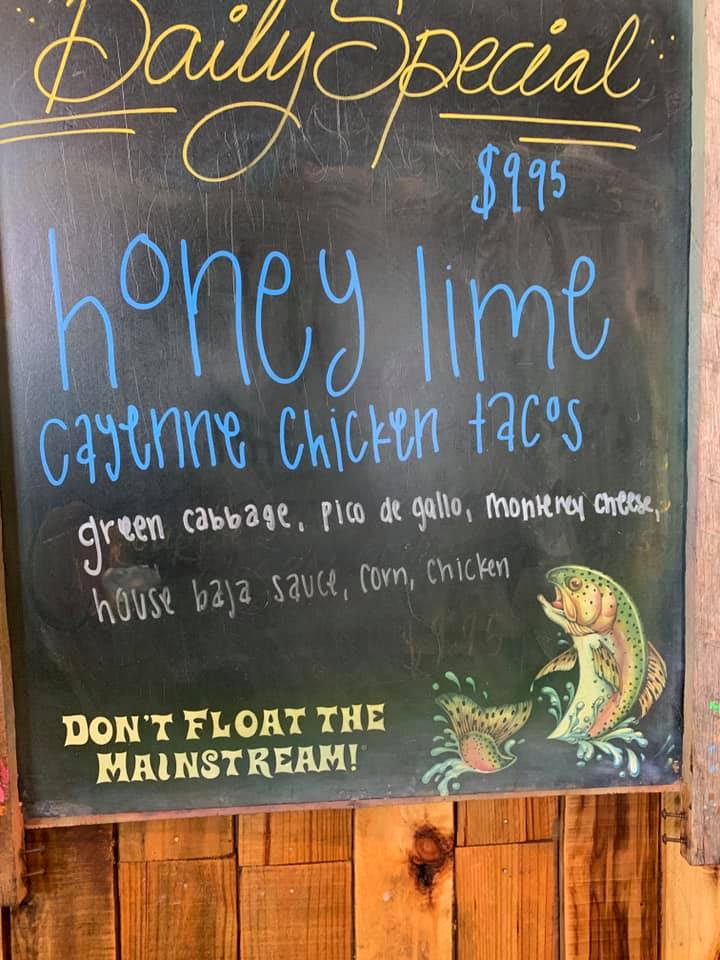 Daily Special
$9.95
honey lime
cayenne chicken tacos
green cabbage, pico de gallo, monterey cheese,
house baja sauce, corn, chicken
DON'T FLOAT THE
MAINSTREAM!